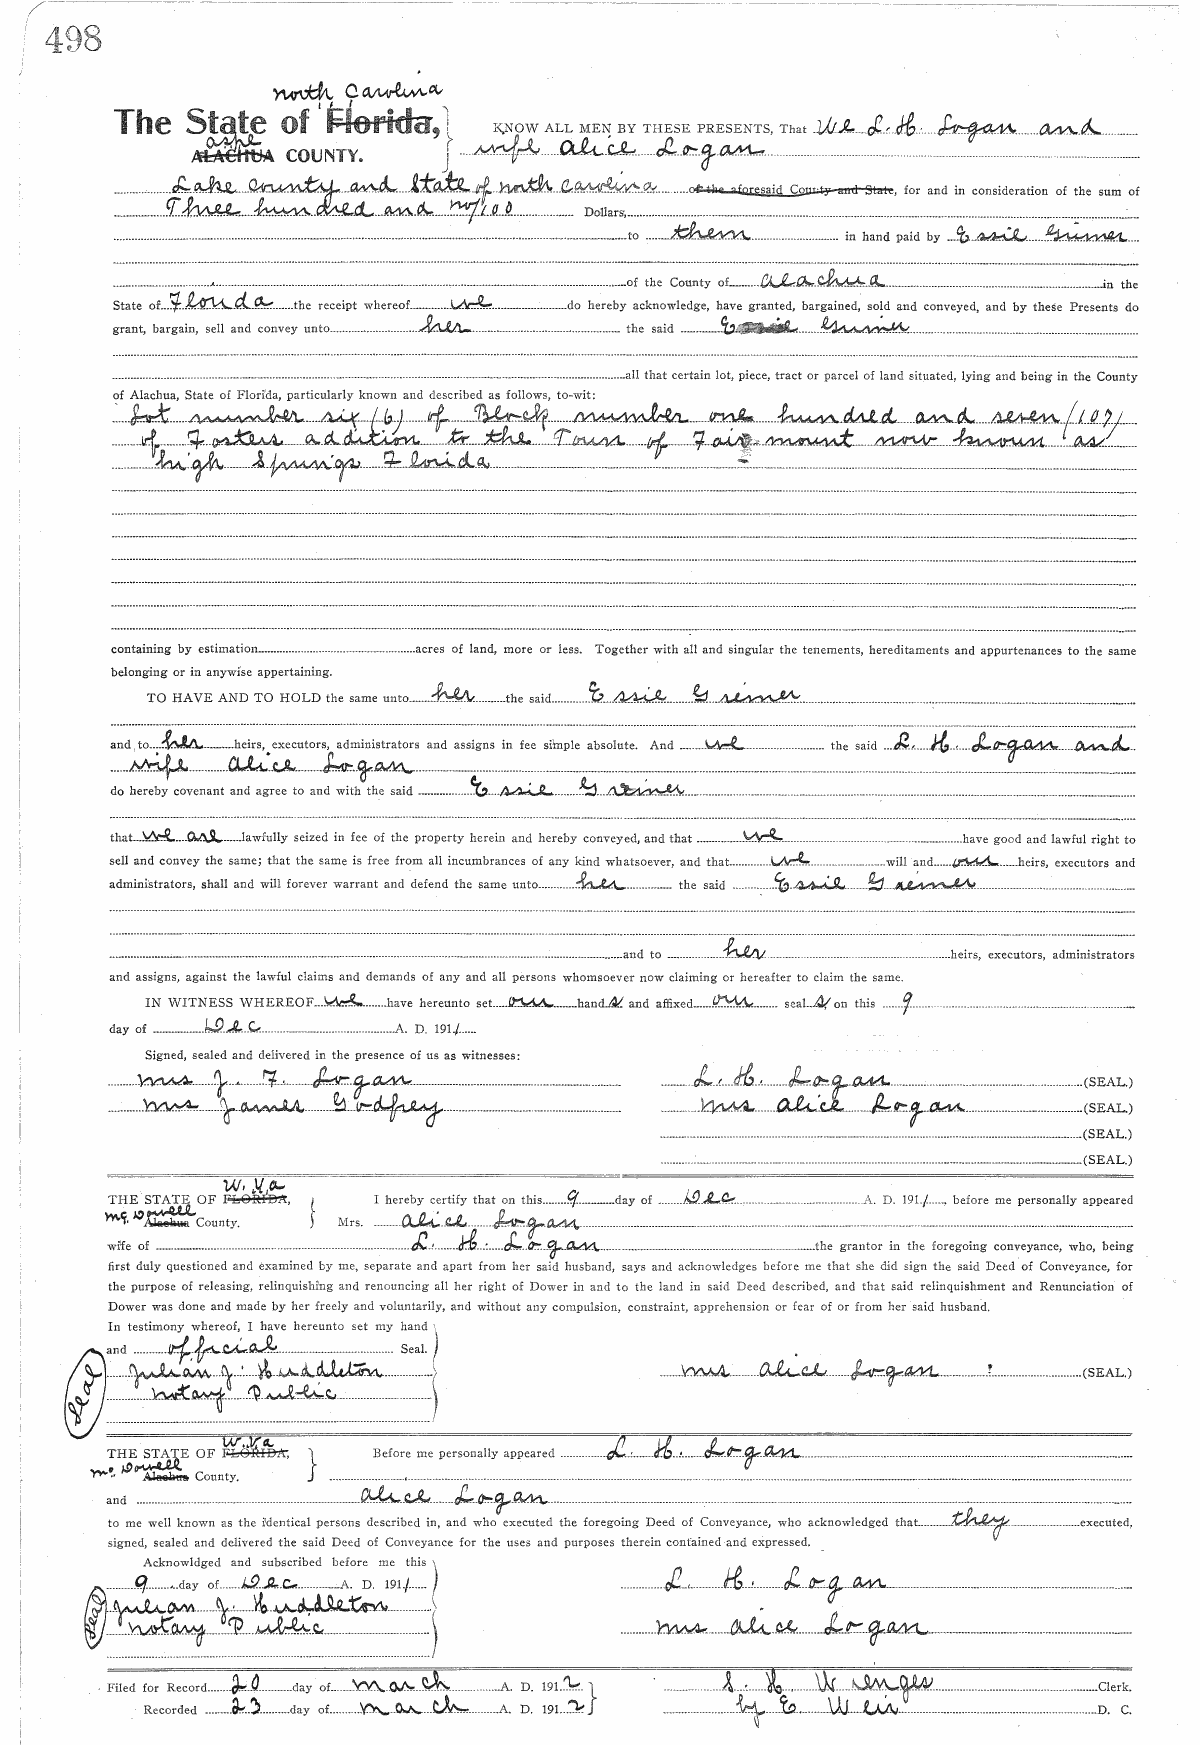 498
north Carolina
The State of Florida, KNOW ALL MEN BY THESE PRESENTS, That We L. H. Logan and
ashe
ALACHUA COUNTY. wife Alice Logan
Lake County and State of north Carolina of the aforesaid County and State, for and in consideration of the sum of
Three hundred and no/100 Dollars,
to them in hand paid by Essie Griner
of the County of Alachua in the
State of Florida the receipt whereof we do hereby acknowledge, have granted, bargained, sold and conveyed, and by these Presents do
grant, bargain, sell and convey unto her the said Essie Griner
all that certain lot, piece, tract or parcel of land situated, lying and being in the County
of Alachua, State of Florida, particularly known and described as follows, to-wit:
Lot number six (6) of Block number one hundred and seven (107)
of Fosters addition to the Toun of Fair-mount now knoun as
high Springs Florida
containing by estimation acres of land, more or less. Together with all and singular the tenements, hereditaments and appurtenances to the same
belonging or in anywise appertaining.
TO HAVE AND TO HOLD the same unto her the said Essie Greiner
and to her heirs, executors, administrators and assigns in fee simple absolute. And we the said L. H. Logan and
wife Alice Logan
do hereby covenant and agree to and with the said Essie Greiner
that we are lawfully seized in fee of the property herein and hereby conveyed, and that we have good and lawful right to
sell and convey the same; that the same is free from all incumbrances of any kind whatsoever, and that we will and our heirs, executors and
administrators, shall and will forever warrant and defend the same unto her the said Essie Greiner
and to her heirs, executors, administrators
and assigns, against the lawful claims and demands of any and all persons whomsoever now claiming or hereafter to claim the same.
IN WITNESS WHEREOF we have hereunto set our hands and affixed our seals on this 9
day of Dec A. D. 1911
Signed, sealed and delivered in the presence of us as witnesses:
mrs J. F. Logan L. H. Logan (SEAL.)
mrs James Godfrey mrs Alice Logan (SEAL.)
(SEAL.)
(SEAL.)
W. Va
THE STATE OF FLORIDA, I hereby certify that on this 9 day of Dec A. D. 1911, before me personally appeared
Mc. Dowell
Alachua County. Mrs. Alice Logan
wife of L. H. Logan the grantor in the foregoing conveyance, who, being
first duly questioned and examined by me, separate and apart from her said husband, says and acknowledges before me that she did sign the said Deed of Conveyance, for
the purpose of releasing, relinquishing and renouncing all her right of Dower in and to the land in said Deed described, and that said relinquishment and Renunciation of
Dower was done and made by her freely and voluntarily, and without any compulsion, constraint, apprehension or fear of or from her said husband.
In testimony whereof, I have hereunto set my hand
and official Seal.
Seal Julian J. Huddleton mrs Alice Logan (SEAL.)
notary Public
W. Va
THE STATE OF FLORIDA, Before me personally appeared L. H. Logan
Mc. Dowell
Alachua County.
and Alice Logan
to me well known as the identical persons described in, and who executed the foregoing Deed of Conveyance, who acknowledged that they executed,
signed, sealed and delivered the said Deed of Conveyance for the uses and purposes therein contained and expressed.
Acknowldged and subscribed before me this
9 day of Dec A. D. 1911 L. H. Logan
Seal Julian J. Huddleton
notary Public mrs Alice Logan
Filed for Record 20 day of march A. D. 1912 S. H. Wienges Clerk.
Recorded 23 day of march A. D. 1912 by E. Weir D. C.